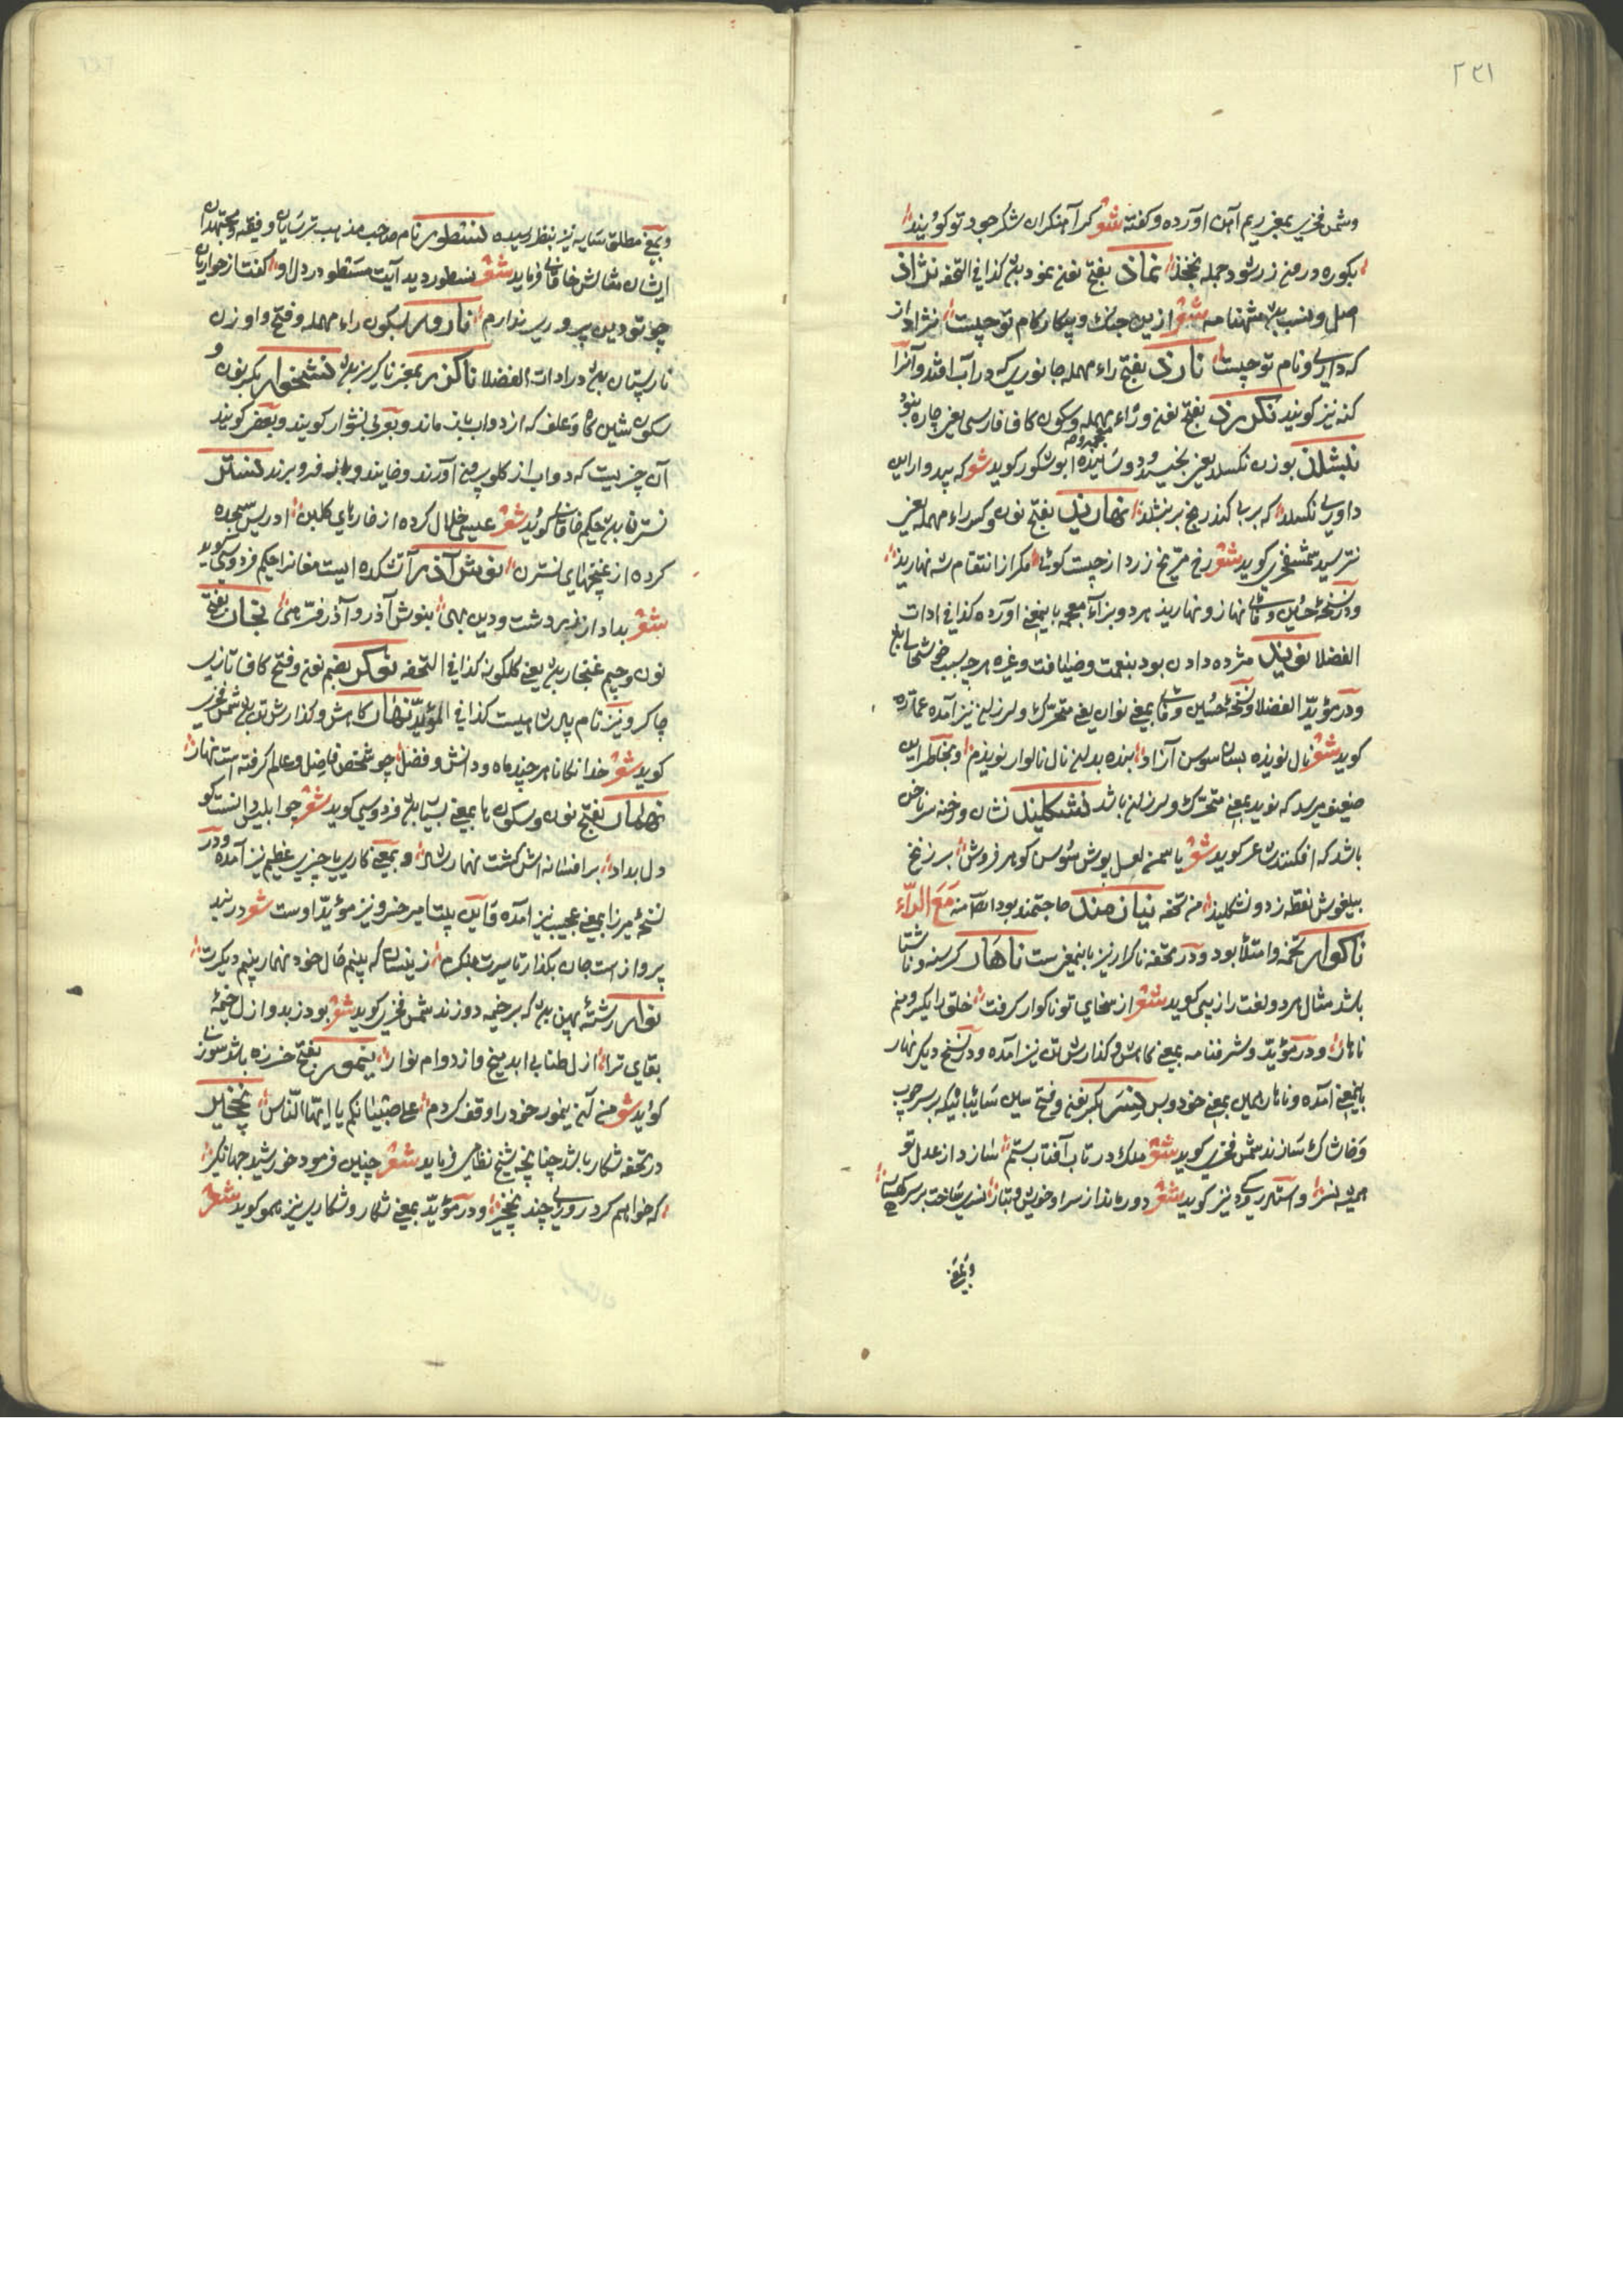 ٢٣١
وشمس فخری بمعنی ریم آهن آورده و گفته شعر کرا منکران شکر جود تو گویند
بکوره درون زر شود جمله نخجذ نماذ بفتح نون نمود بین کذا فی التحفه نژاذ
اصل و نسب بین شهنامه شعر ازین جنک و پیکار کام تو چیست نژاد از
که داری و نام تو چیست نارذ بفتح راء مهمله جانوری که در آب افتد و آنرا
کنه نیز کویند نکزرد بفتح نون و راء مهمله و سکون کاف فارسی یعنی چاره نبود
نبشلذ بوزن نکسلد یعنی نخسبد و دوسانیده ابو شکور کوید شعر که بیدوار این
داوری نکسلد که بر بی کنه رنج بر نبشلد نهاریذ بفتح نون و کسر راء مهمله یعنی
نترسید شمس فخری کوید شعر رخ مریخ زرد از چیست کوئی مکر از انتقام شه نهارید
ودر نسخهٔ حسین وفائی نهاز و نهازید هر دو بزاء معجمه باینمعنی آورده کذا فی ادات
الفضلا نوید مژده دادن بود بنعمت و ضیافت و غیره هرچه سبب خوشحالی بود
ودر مؤید الفضلا و نسخهٔ حسین وفائی بمعنی نوان یعنی متحرک و لرزان نیز آمده عماره
کوید شعر نال نویذه بسان سوسن آزاد بنده بدان نال نالوار نویذم و بخاطر این
ضعیف میرسد که نوید بمعنی متحرک و لرزان باشد نشکلید نشان و رخنه سر ناخن
باشد که افکنند شاعر کوید شعر یاسمن لعل پوش سوسن کوهر فروش بر زنخ
پیلغوش نقطه زد و نشکلید من تحفه نیازمند حاجتمند بود ایضا منه مع الراء
ناکوار تخمه و امتلا بود ودر تحفه ناکوار نیز باینمعنی ست ناهار کرسنه و ناشتا
باشد مثال هر دو لغت رازیبی کوید شعر از سخای تو ناکوار کرفت خلق را یکسر و منم
ناهار ودر مؤید و شرفنامه بمعنی کاهش و کذارش تن نیز آمده ودر نسخ دیکر نهار
باینمعنی آمده و ناهار همین بمعنی خود و بس نسر بکسر نون و فتح سین سائبانیکه بر سر چوب
و خاشاک سازند شمس فخری کوید شعر ملک در تاب آفتاب ستم سازد از عدل تو
همیشه نسر و استاد رودکی نیز کوید شعر دور ماند از سرا و خویش و تبار نسری ساخت بر سر کهسار
و بمعنی
و بمعنی مطلق سایه نیز بنظر رسیده نسطور نام صاحب مذهب ترسایان و فقیه و مجتهدان
ایشان مثالش خاقانی فرماید شعر نسطور دید آیت مسطور در دل او کفت از حواریان
چو تو دین پروری ندارم نارور بسکون راء مهمله و فتح واو زن
نارپستان بین در ادات الفضلا ناکزر بمعنی ناکریز بین نشخوار بکسر نون و
سکون شین کاه و علف که از دواب باز ماند و بعربی نشوار کویند و بعضی کویند
آن چیزیست که دواب از کلو بیرون آورند و خایند و باز فرو برند نستر
نسترن بین حکیم خاقانی کوید شعر عیسی خلال کرده از خارهای کلبن ادریس سبحه
کرده از غنچهای نسترن نوش آذر آتشکده ایست مغانرا حکیم فردوسی کوید
شعر بداد از زردشت و دین بهی بنوش آذر و آذر فرهی نجار بفتح
نون و جیم غنجار بین یعنی کلکونه کذا فی التحفه نوکر بضم نون و فتح کاف تازی
چاکر و نیز نام پارسائیست کذا فی المؤید نهار کاهش و کذارش تن بین شمس فخری
کوید شعر خدایکانا هر چند ماه و دانش و فضل چو شخص فاضل و عالم کرفته است نهار
نهمار بفتح نون و سکون ها بمعنی بسیار بین فردوسی کوید شعر چو ابلیس دانست کو
دل بداد بر افسانه اش کشت نهمار شاد و بمعنی کاری یا چیزی عظیم نیز آمده ودر
نسخهٔ میرزا بمعنی عجیب نیز آمده و این بیت امیر خسرو نیز مؤید اوست شعر در بند
پرواز است جان بکذار تا سیرت بنکرم زینسان که بینم حال خود نهمار بینم دیکرت
نوار رشتهٔ پهن بین که بر خیمه دوزند شمس فخری کوید شعر بود ز بدو ازل خیمهٔ
بقای ترا ازل طناب ابد میخ و از دوام نوار نیمور بفتح خرزه باشد سوزنی
کوید شعر من آن نیمور خود را وقف کردم علی صبیانکم یا ایها الناس نخجیر
در تحفه شکار باشد چنانچه شیخ نظامی فرماید شعر چنین فرمود خورشید جهانکیر
که خواهم کرد روزی چند نخجیر ودر مؤید بمعنی شکار و شکاری نیز همو کوید شعر